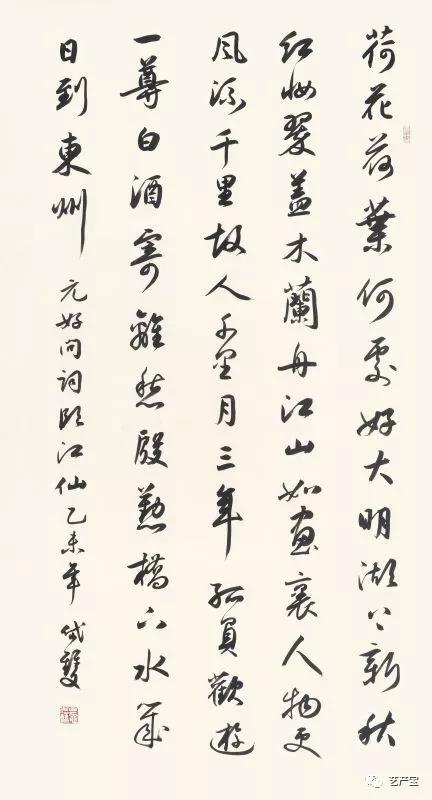 荷花荷葉何處好大明湖上新秋
紅妝翠蓋木蘭舟江山如畫裏人物更
風流千里故人千里月三年孤負歡遊
一尊白酒寄離愁殷懃橋下水幾
日到東州 元好問詞臨江仙乙未年
艺产宝